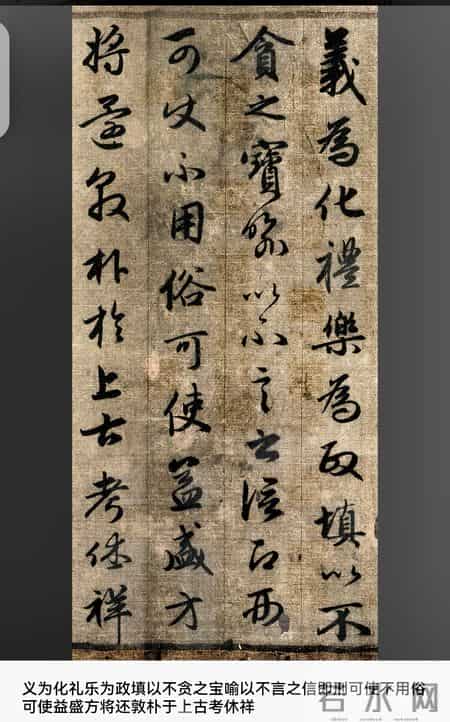 義為化禮樂為政填以不
貪之寶喻以不言之信即刑
可使不用俗可使益盛方
將還敦朴於上古考休祥
义为化礼乐为政填以不贪之宝喻以不言之信即刑可使不用俗
可使益盛方将还敦朴于上古考休祥